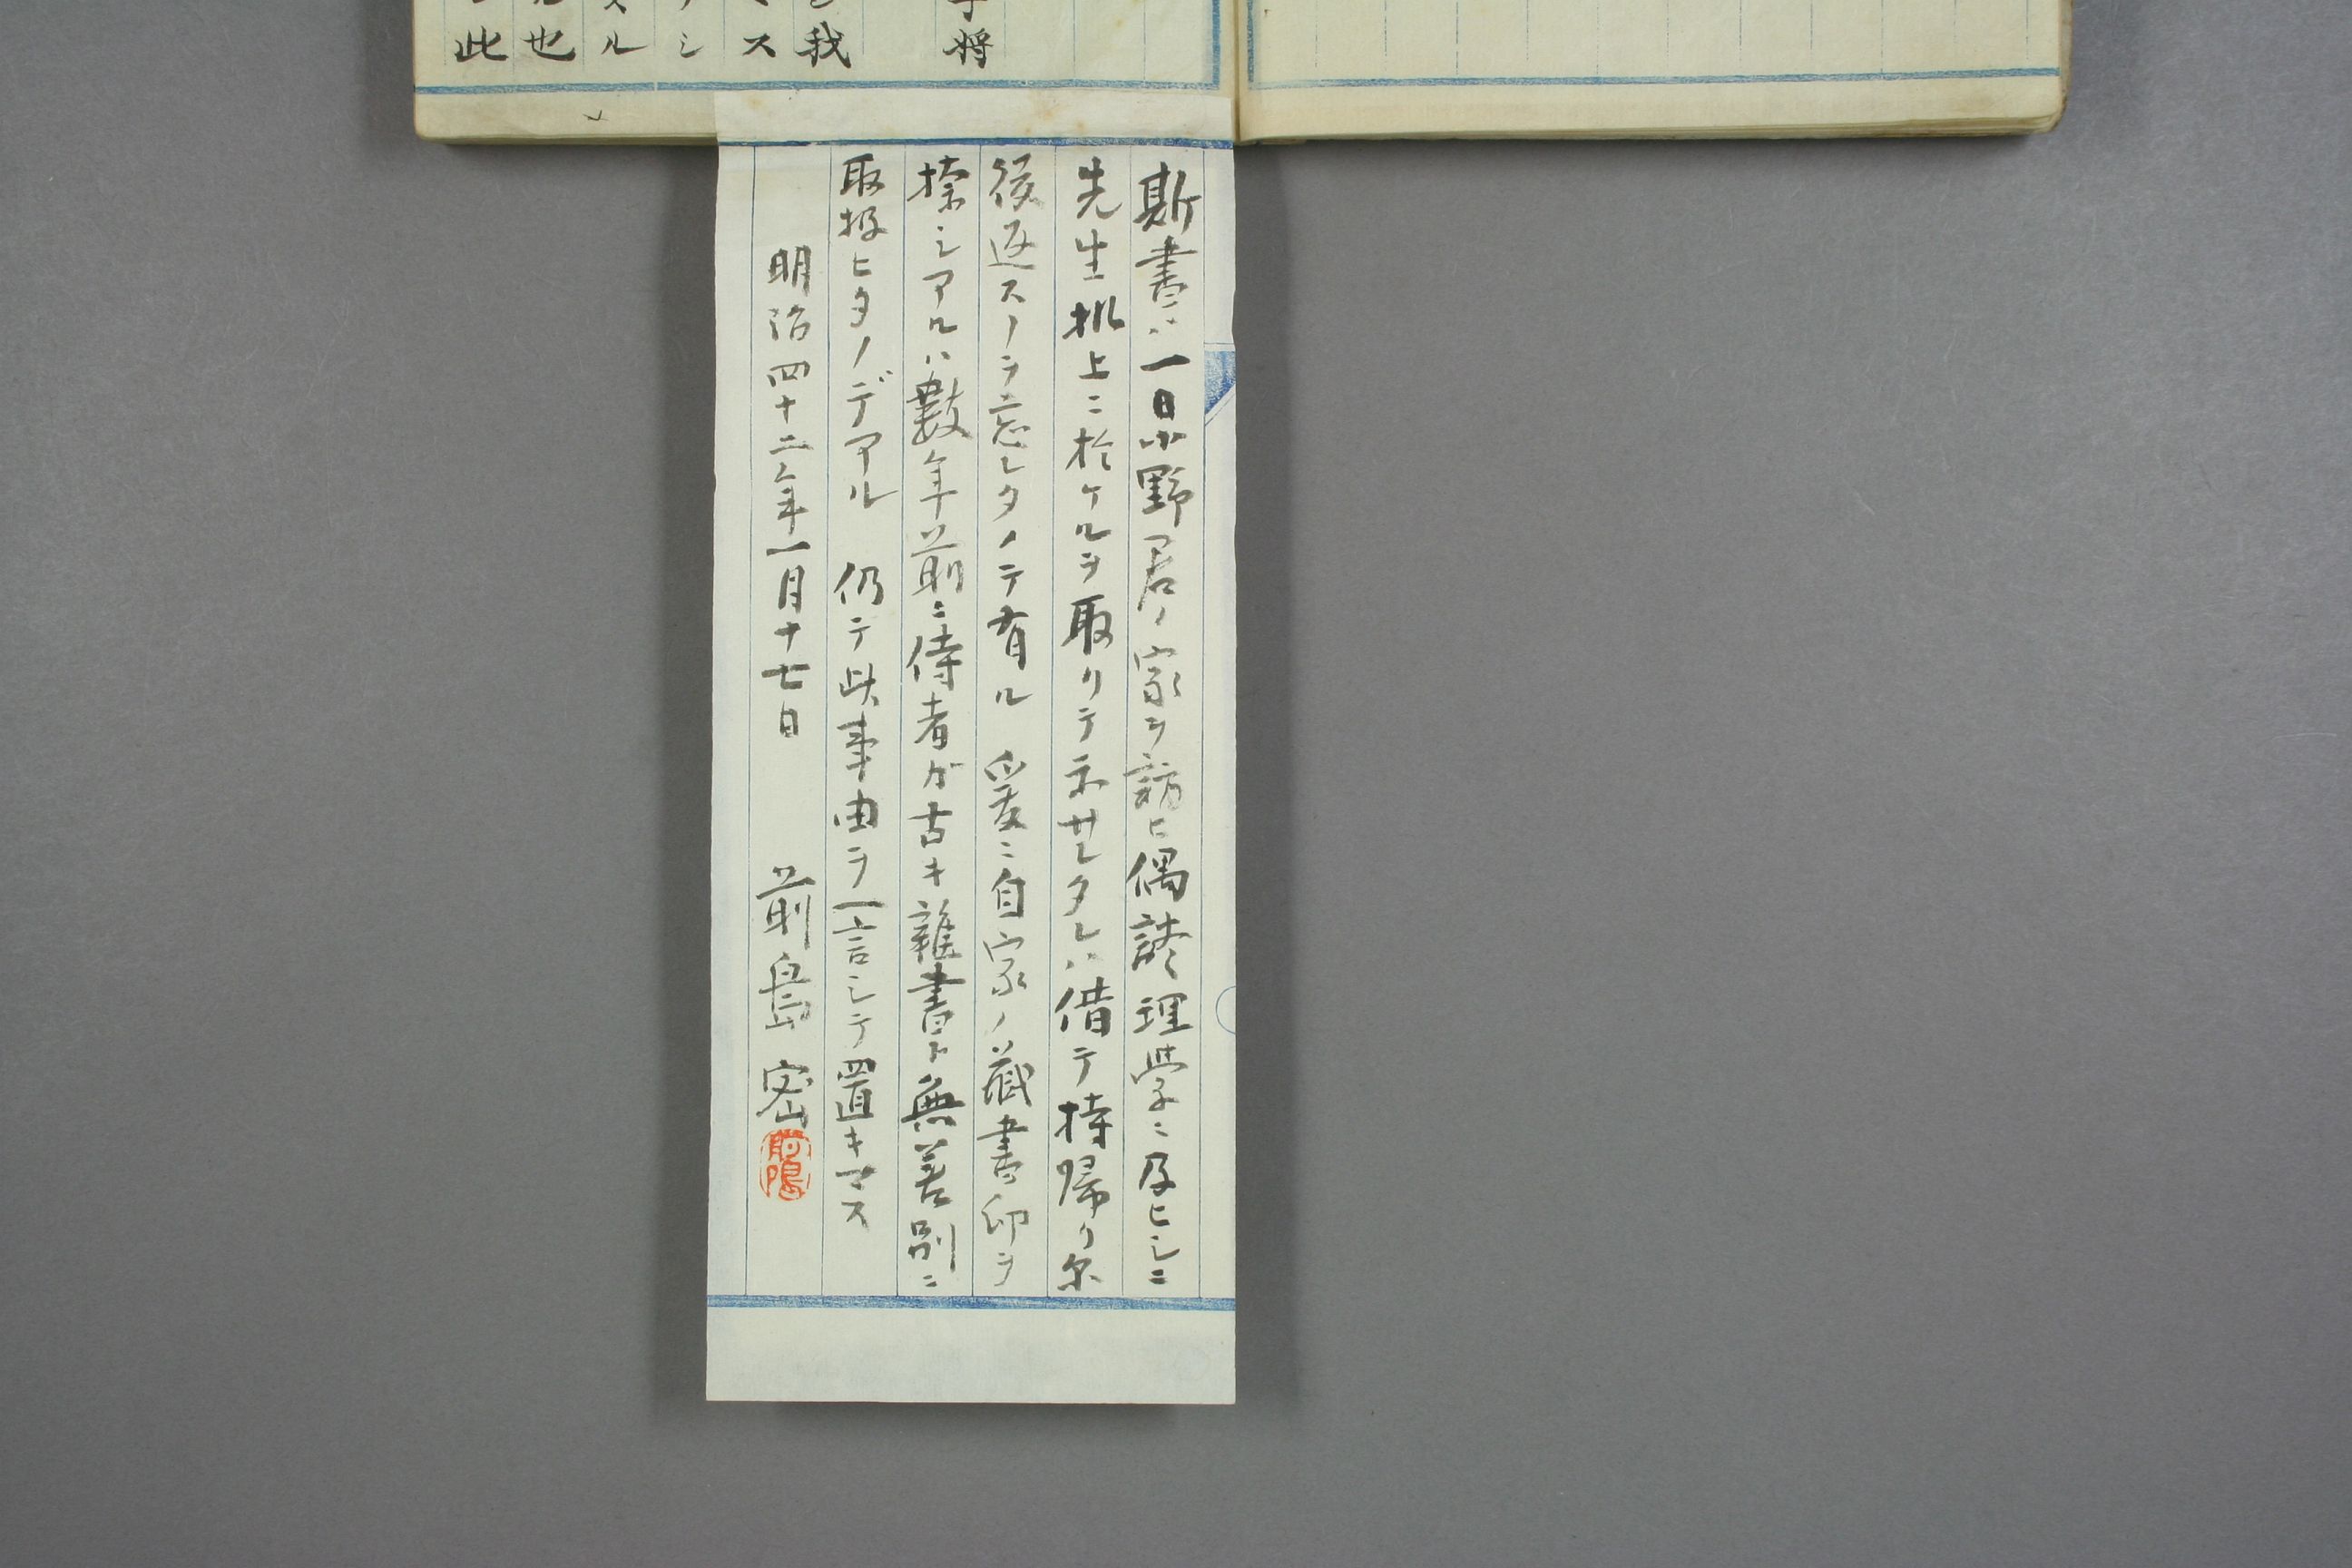 斯書ハ一日小野君ノ家ヲ訪ヒ偶談理学ニ及ヒシニ
先生机上ニ於ケルヲ取リテ示サレタレハ借テ持帰リ尓
後返スノヲ忘レタノテ有ル 爰ニ自家ノ蔵書印ヲ
捺シアルハ數年前ニ侍者ガ古キ雜書ト無差別ニ
取扱ヒタノデアル 仍テ此事由ヲ一言シテ置キマス
明治四十二年一月十七日 前島密
将
我
ス
シ
スル
也
此